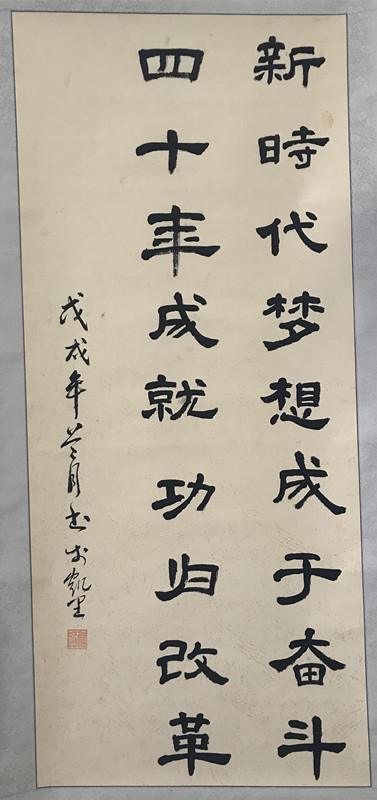 新時代梦想成于奋斗
四十年成就功归改革
戊戌年兰月书于凯里